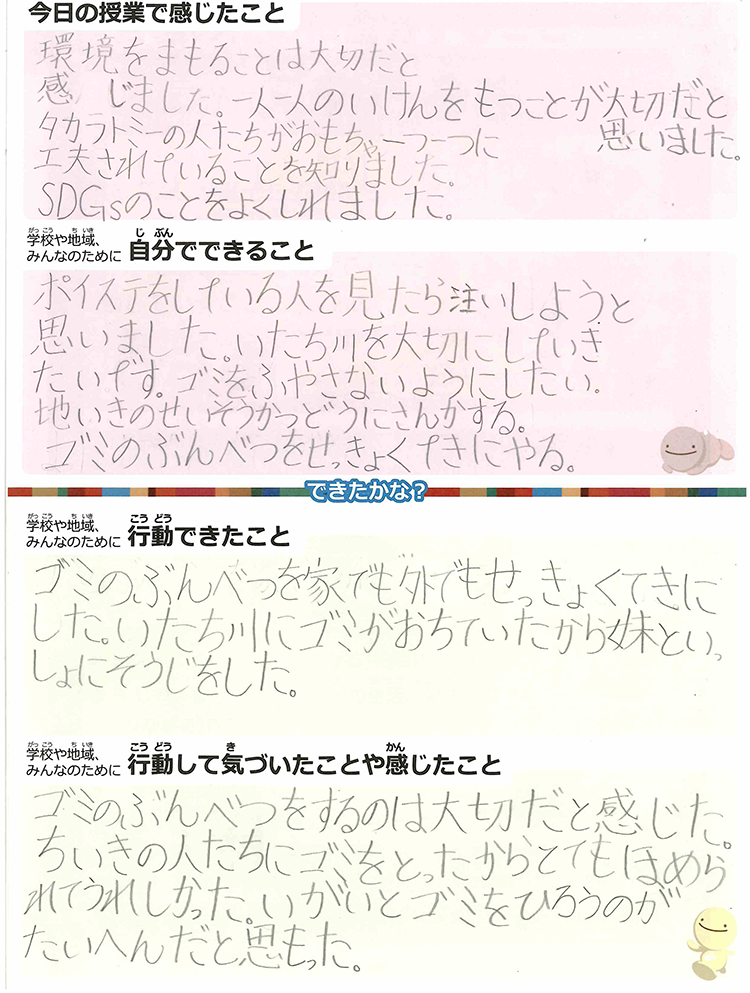 今日の授業で感じたこと
環境をまもることは大切だと
感じました。一人一人のいけんをもつことが大切だと
思いました。
タカラトミーの人たちがおもちゃ一つ一つに
工夫されていることを知りました。
SDGsのことをよくしれました。
がっこう ちいき
学校や地域、
みんなのために
じぶん
自分でできること
ポイステをしている人を見たら注いしようと
思いました。いたち川を大切にしていき
たいです。ゴミをふやさないようにしたい。
地いきのせいそうかつどうにさんかする。
ゴミのぶんべつをせっきょくてきにやる。
できたかな?
がっこう ちいき
学校や地域、
みんなのために
こうどう
行動できたこと
ゴミのぶんべつを家でも外でもせっきょくてきに
した。いたち川にゴミがおちていたから妹といっ
しょにそうじをした。
がっこう ちいき
学校や地域、
みんなのために
こうどう き かん
行動して気づいたことや感じたこと
ゴミのぶんべつをするのは大切だと感じた。
ちいきの人たちにゴミをとったからとてもほめら
れてうれしかった。いがいとゴミをひろうのが
たいへんだと思もった。